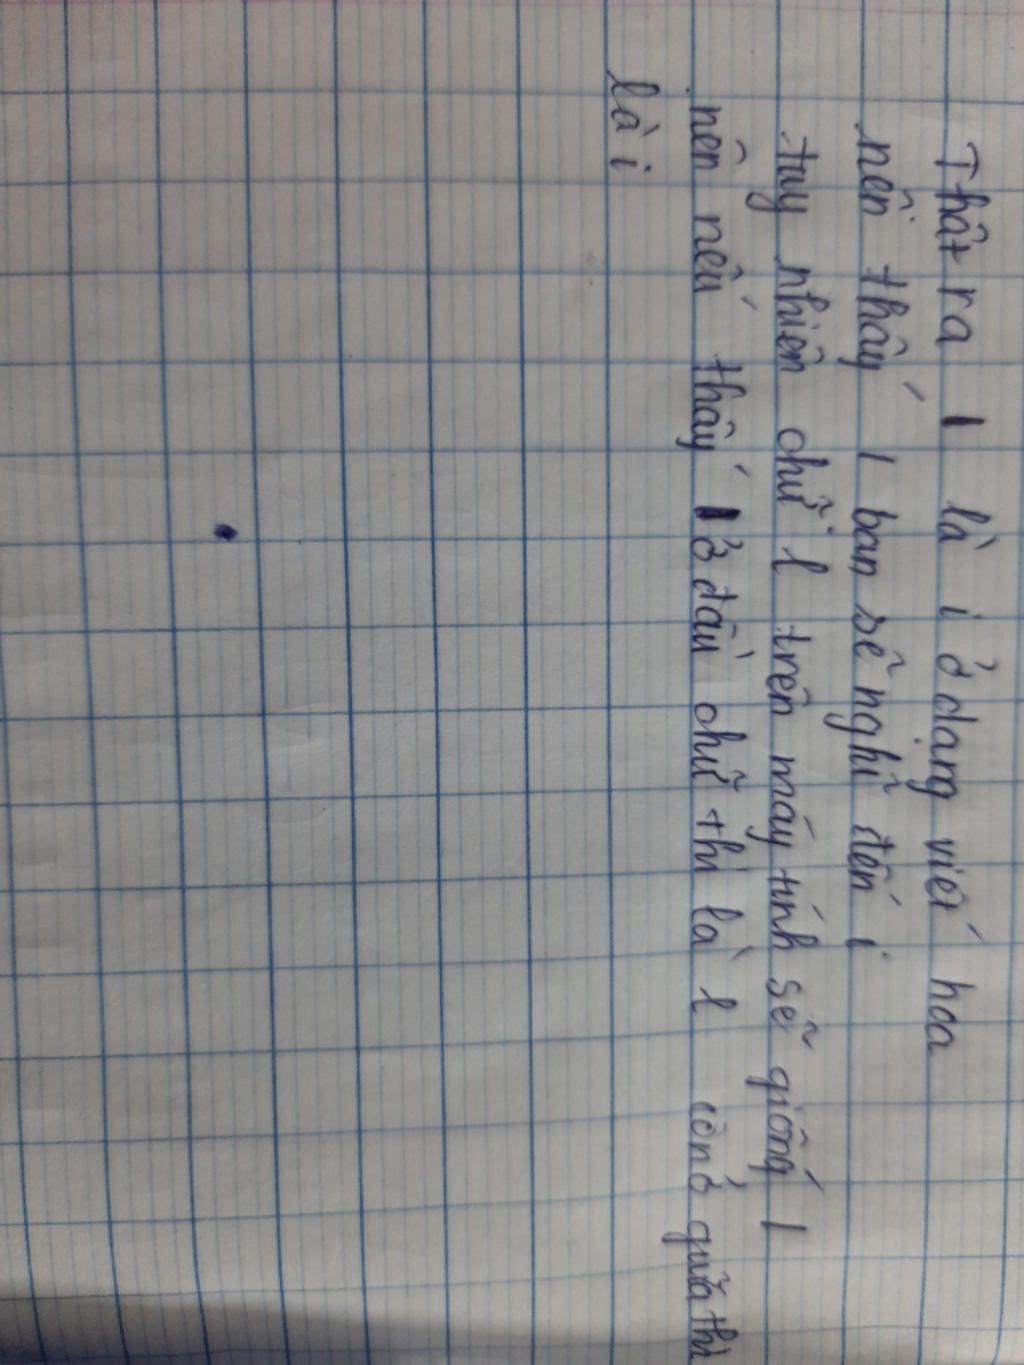 Thật ra I là i ở dạng viết hoa
nên thấy I bạn sẽ nghĩ đến i
tuy nhiên chữ l trên máy tính sẽ giống I
nên nếu thấy I ở đầu chữ thì là l còn ở giữa thì
là i